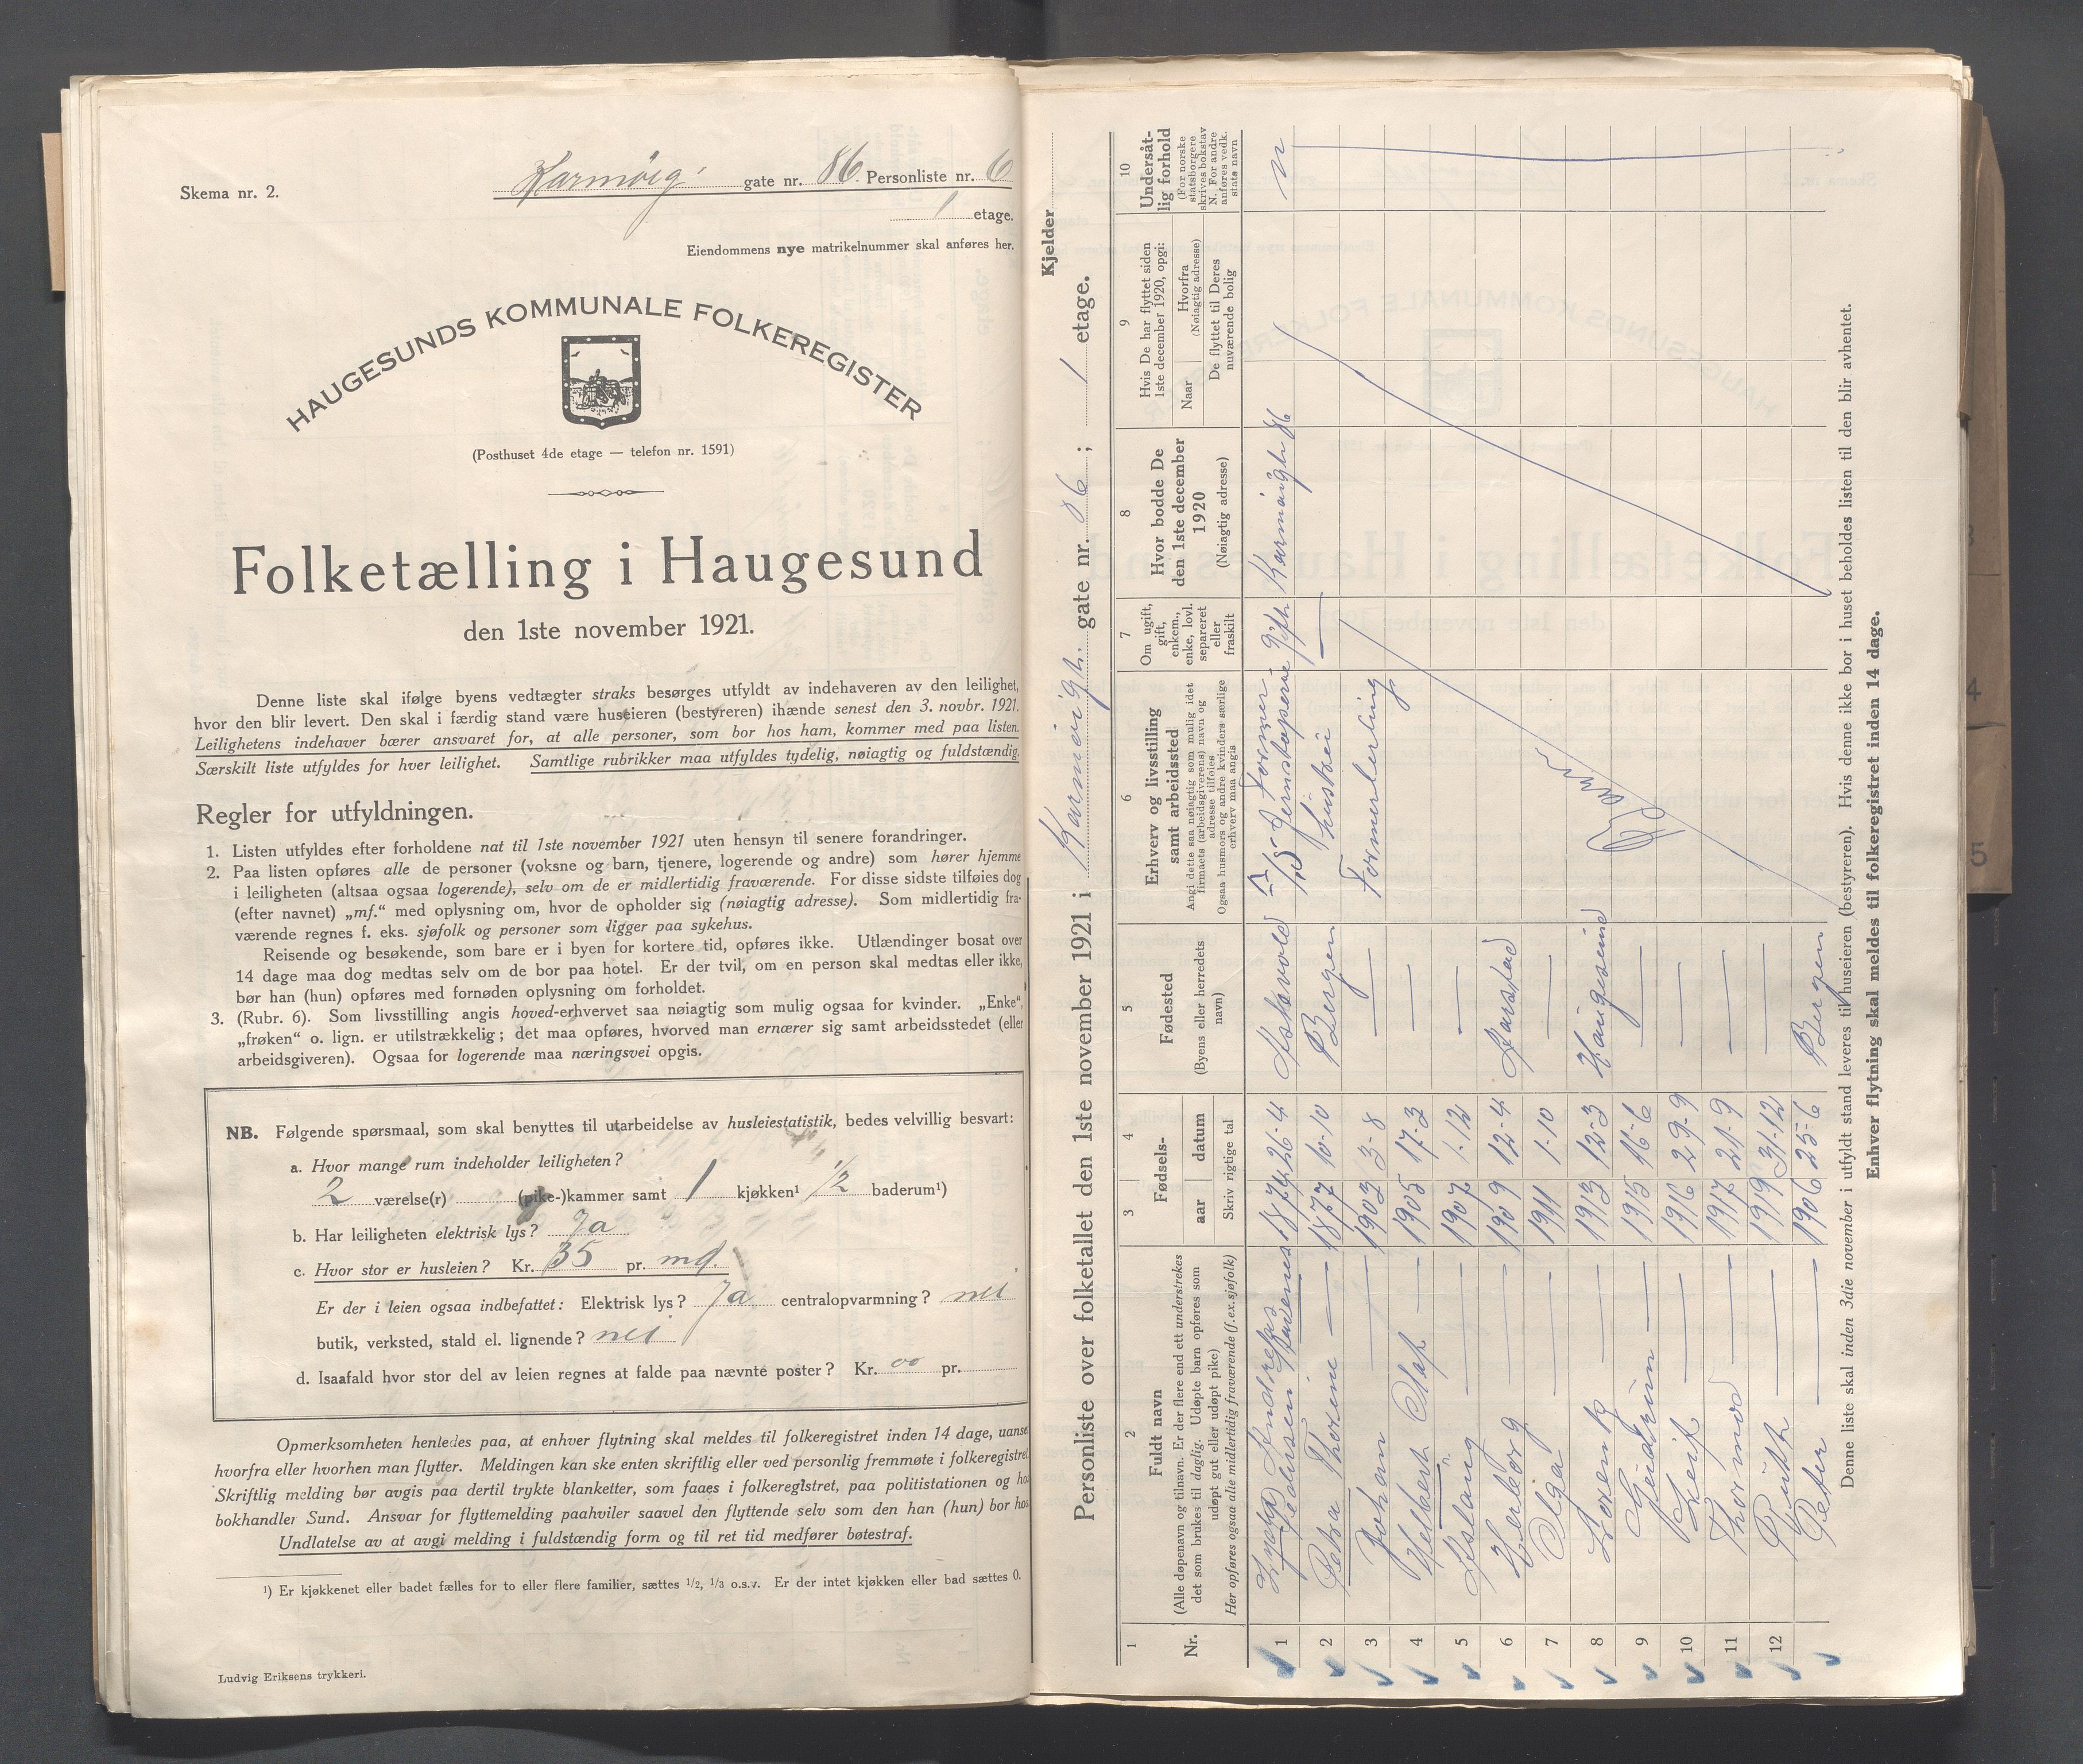 Skema nr. 2.
Karmøig gate nr. 86 Personliste nr. 6
1 etage.
Eiendommens nye matrikelnummer skal anføres her.
HAUGESUNDS KOMMUNALE FOLKEREGISTER
(Posthuset 4de etage — telefon nr. 1591)
Folketælling i Haugesund
den 1ste november 1921.
Denne liste skal ifølge byens vedtægter straks besørges utfyldt av indehaveren av den leilighet,
hvor den blir levert. Den skal i færdig stand være huseieren (bestyreren) ihænde senest den 3. novbr. 1921.
Leilighetens indehaver bærer ansvaret for, at alle personer, som bor hos ham, kommer med paa listen.
Særskilt liste utfyldes for hver leilighet. Samtlige rubrikker maa utfyldes tydelig, nøiagtig og fuldstændig.
Regler for utfyldningen.
1. Listen utfyldes efter forholdene nat til 1ste november 1921 uten hensyn til senere forandringer.
2. Paa listen opføres alle de personer (voksne og barn, tjenere, logerende og andre) som hører hjemme
i leiligheten (altsaa ogsaa logerende), selv om de er midlertidig fraværende. For disse sidste tilføies dog
(efter navnet) „mf.“ med oplysning om, hvor de opholder sig (nøiagtig adresse). Som midlertidig fra-
værende regnes f. eks. sjøfolk og personer som ligger paa sykehus.
Reisende og besøkende, som bare er i byen for kortere tid, opføres ikke. Utlændinger bosat over
14 dage maa dog medtas selv om de bor paa hotel. Er der tvil, om en person skal medtas eller ikke,
bør han (hun) opføres med fornøden oplysning om forholdet.
3. (Rubr. 6). Som livsstilling angis hoved-erhvervet saa nøiagtig som mulig ogsaa for kvinder. „Enke“,
„frøken“ o. lign. er utilstrækkelig; det maa opføres, hvorved man ernærer sig samt arbeidsstedet (eller
arbeidsgiveren). Ogsaa for logerende maa næringsvei opgis.
NB. Følgende spørsmaal, som skal benyttes til utarbeidelse av husleiestatistik, bedes velvillig besvart:
a. Hvor mange rum indeholder leiligheten?
2 værelse(r) (pike-)kammer samt 1 kjøkken¹ 1/2 baderum¹)
b. Har leiligheten elektrisk lys? Ja
c. Hvor stor er husleien? Kr. 35 pr. md.
Er der i leien ogsaa indbefattet: Elektrisk lys? Ja centralopvarmning? nei
butik, verksted, stald el. lignende? nei
d. Isaafald hvor stor del av leien regnes at falde paa nævnte poster? Kr. 00 pr.
Opmerksomheten henledes paa, at enhver flytning skal meldes til folkeregistret inden 14 dage, uanset
hvorfra eller hvorhen man flytter. Meldingen kan ske enten skriftlig eller ved personlig fremmøte i folkeregistret.
Skriftlig melding bør avgis paa dertil trykte blanketter, som faaes i folkeregistret, paa politistationen og hos
bokhandler Sund. Ansvar for flyttemelding paahviler saavel den flyttende selv som den han (hun) bor hos
Undlatelse av at avgi melding i fuldstændig form og til ret tid medfører bøtestraf.
¹) Er kjøkkenet eller badet fælles for to eller flere familier, sættes 1/2, 1/3 o.s.v. Er der intet kjøkken eller bad sættes 0.
Ludvig Eriksens trykkeri.
Kjelder
Personliste over folketallet den 1ste november 1921 i Karmøigt gate nr. 86; 1 etage.
1 Nr.
2 Fuldt navn
(Alle døpenavn og tilnavn. Er der flere end ett understrekes
det som brukes til daglig. Udøpte barn opføres som
udøpt gut eller udøpt pike)
Her opføres ogsaa alle midlertidig fraværende (f. ex. sjøfolk)
3 4 Fødsels-
aar datum
Skriv rigtige tal
5 Fødested
(Byens eller herredets
navn)
6 Erhverv og livsstilling
samt arbeidssted
Angi dette saa nøiagtig som mulig idet
firmaets (arbeidsgiverens) navn og
adresse tilføies
Ogsaa husmors og andre kvinders særlige
erhverv maa angis
7 Om ugift,
gift,
enkem.,
enke, lovl.
separeret
eller
fraskilt
8 Hvor bodde De
den 1ste december
1920
(Nøiagtig adresse)
9 Hvis De har flyttet siden
1ste december 1920, opgi:
Naar Hvorfra
(Nøiagtig adresse)
De flyttet til Deres
nuværende bolig
10 Undersåt-
lig forhold
(For norske
statsborgere
skrives bokstav
N. For andre
anføres vedk.
stats navn
1 Andreas Pedersen 1874 26-4 Askevold Former Jernstøperie Gift Karmøigt 86 N
2 Petra Thorine — 1877 10-10 Bergen hustru —
3 Johan — 1903 3-8 — Formerlerling
4 Olaf — 1905 17-3 —
5 Aslaug — 1907 1-12 —
6 Herborg — 1909 12-4 Aarstad
7 Olga — 1911 1-10 —
8 Lorentz — 1913 12-3 Haugesund
9 Gudrun — 1915 16-6 —
10 Leif — 1916 29-9 —
11 Thormod — 1917 21-9 —
12 Ruth — 1919 31-12 —
Peter — 1906 25-6 Bergen
Denne liste skal inden 3die november i utfyldt stand leveres til huseieren (bestyreren). Hvis denne ikke bor i huset beholdes listen til den blir avhentet.
Enhver flytning skal meldes til folkeregistret inden 14 dage.